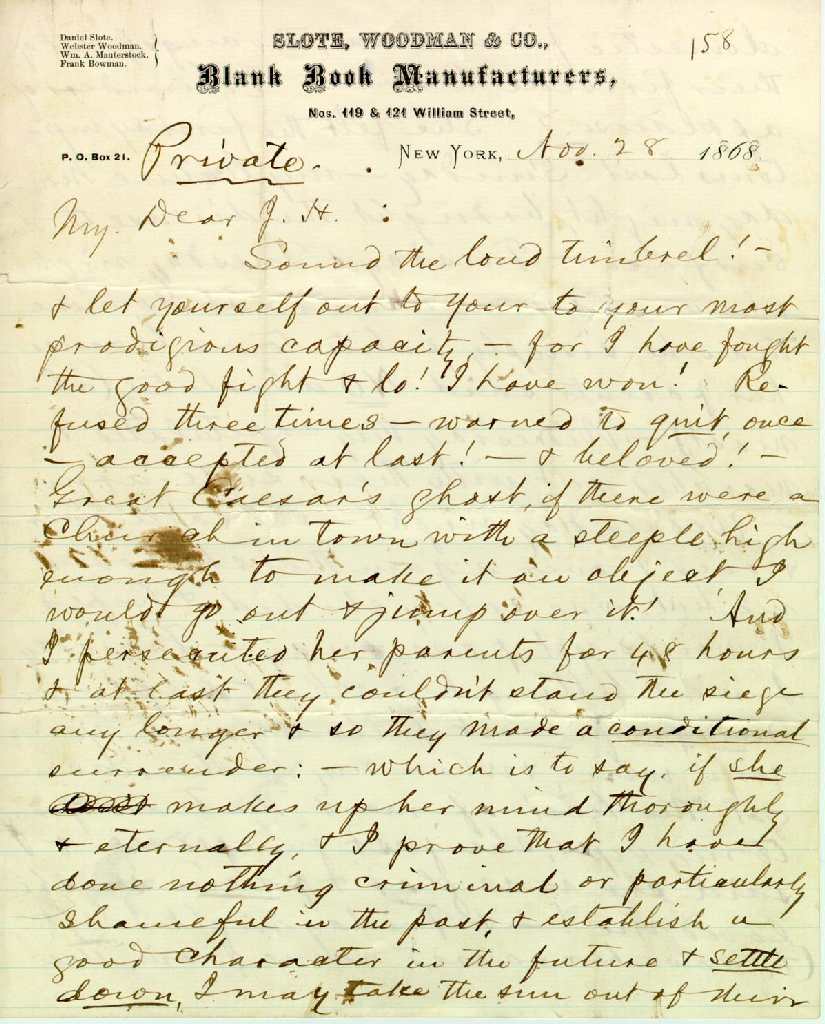 Daniel Slote.
Webster Woodman.
Wm. A. Mauterstock.
Frank Bowman.
SLOTE, WOODMAN & CO.,
158
Blank Book Manufacturers,
Nos. 119 & 121 William Street,
P. O. Box 21.
Private.
NEW YORK, Nov. 28 1868
My Dear J. H. :
Sound the loud timbrel! —
& let yourself out to your to your most
prodigious capacity, — for I have fought
the good fight & lo! I have won! Re-
fused three times — warned to quit, once
— accepted at last! — & beloved! —
Great Caesar's ghost, if there were a
church in town with a steeple high
enough to make it an object I
would go out & jump over it! And
I persecuted her parents for 48 hours
& at last they couldn't stand the siege
any longer & so they made a conditional
surrender: — which is to say, if she
makes up her mind thoroughly
& eternally, & I prove that I have
done nothing criminal or particularly
shameful in the past, & establish a
good character in the future & settle
down, I may take the sun out of their